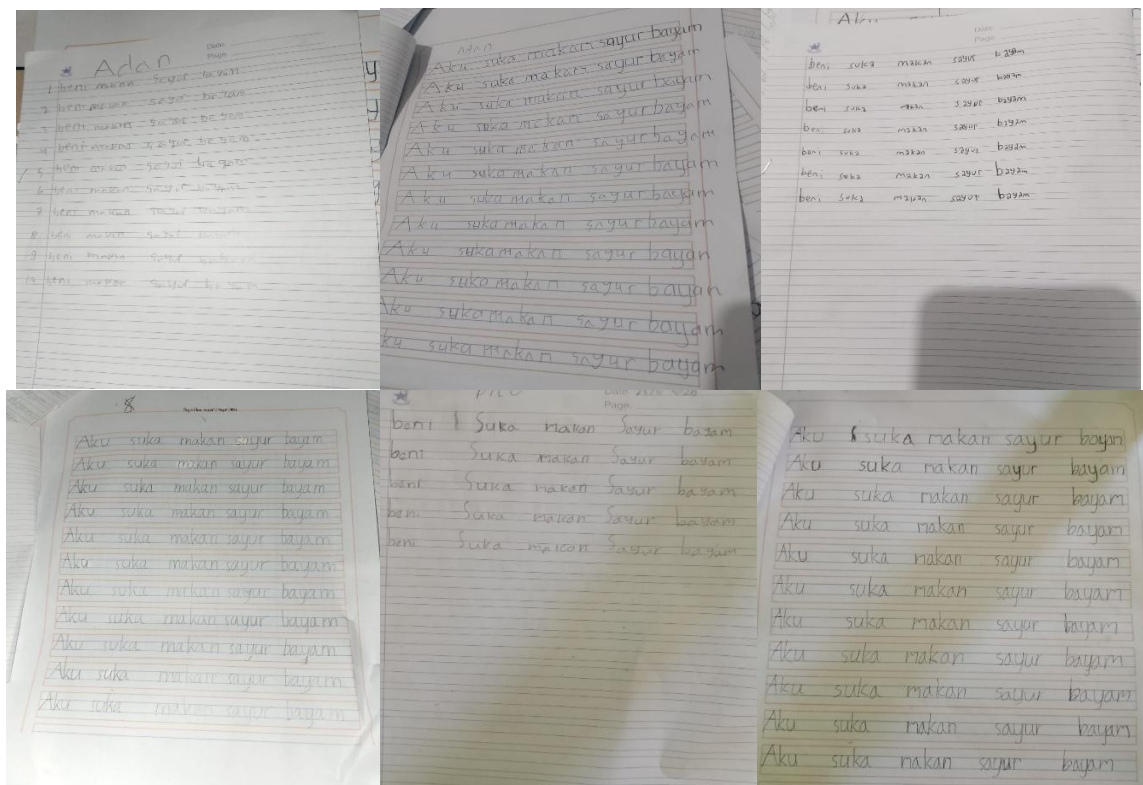 Adan
Date
Page
1 beni makan sayur bayam
2 beni makan sayur bayam
3 beni makan sayur bayam
4 beni makan sayur bayam
5 beni makan sayur bayam
6 beni makan sayur bayam
7 beni makan sayur bayam
8 beni makan sayur bayam
9 beni makan sayur bayam
10 beni makan sayur bayam
Adan
Aku suka makan sayur bayam
Aku suka makan sayur bayam
Aku suka makan sayur bayam
Aku suka makan sayur bayam
Aku suka makan sayur bayam
Aku suka makan sayur bayam
Aku suka makan sayur bayam
Aku suka makan sayur bayam
Aku suka makan sayur bayam
Aku suka makan sayur bayam
Aku suka makan sayur bayam
ku suka makan sayur bayam
Date
Page
beni suka makan sayur bayam
beni suka makan sayur bayam
beni suka makan sayur bayam
beni suka makan sayur bayam
beni suka makan sayur bayam
beni suka makan sayur bayam
beni suka makan sayur bayam
8
Aku suka makan sayur bayam
Aku suka makan sayur bayam
Aku suka makan sayur bayam
Aku suka makan sayur bayam
Aku suka makan sayur bayam
Aku suka makan sayur bayam
Aku suka makan sayur bayam
Aku suka makan sayur bayam
Aku suka makan sayur bayam
Aku suka makan sayur bayam
Aku suka makan sayur bayam
Date
Page
beni Suka makan Sayur bayam
beni Suka makan Sayur bayam
beni Suka makan Sayur bayam
beni Suka makan Sayur bayam
beni Suka makan Sayur bayam
Aku suka makan sayur bayam
Aku suka makan sayur bayam
Aku suka makan sayur bayam
Aku suka makan sayur bayam
Aku suka makan sayur bayam
Aku suka makan sayur bayam
Aku suka makan sayur bayam
Aku suka makan sayur bayam
Aku suka makan sayur bayam
Aku suka makan sayur bayam
Aku suka makan sayur bayam